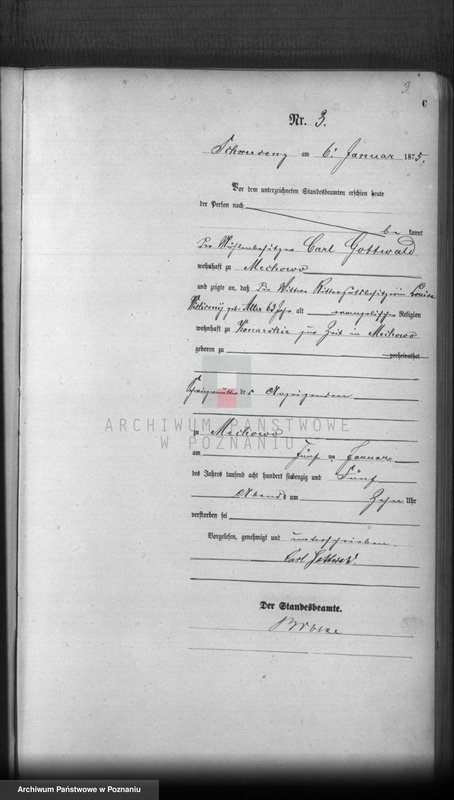 3
C
Nr. 3.
Schwersenz am 6. Januar 1875.
Vor dem unterzeichneten Standesbeamten erschien heute
der Person nach
be kannt
Der Mühlenbesitzer Carl Gottwald
wohnhaft zu
und zeigte an, daß Die Wittwe Rittergutsbesitzerin Louise
geb. 63 Jahr alt evangelischer Religion
wohnhaft zu zur Zeit in
geboren zu verheirathet
Schwiegermutter des Anzeigenden
ARCHIWUM PAŃSTWOWE
W POZNANIU
zu
am Fünf ten Januar
des Jahres tausend acht hundert siebenzig und Fünf
Abends um Zehn Uhr
verstorben sei
Vorgelesen, genehmigt und unterschrieben.
Carl Gottwald.
Der Standesbeamte.
Archiwum Państwowe w Poznaniu